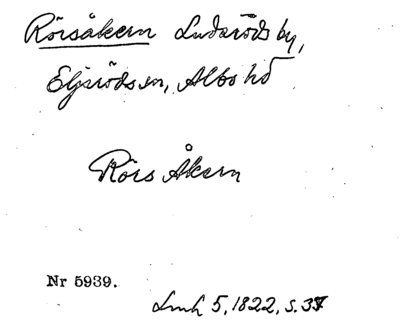 Rörsåkern Ludaröds by,
Eljaröds sn, Albo hd
Rörs Åkern
Nr 5939.
Lmh 5, 1822, s. 37